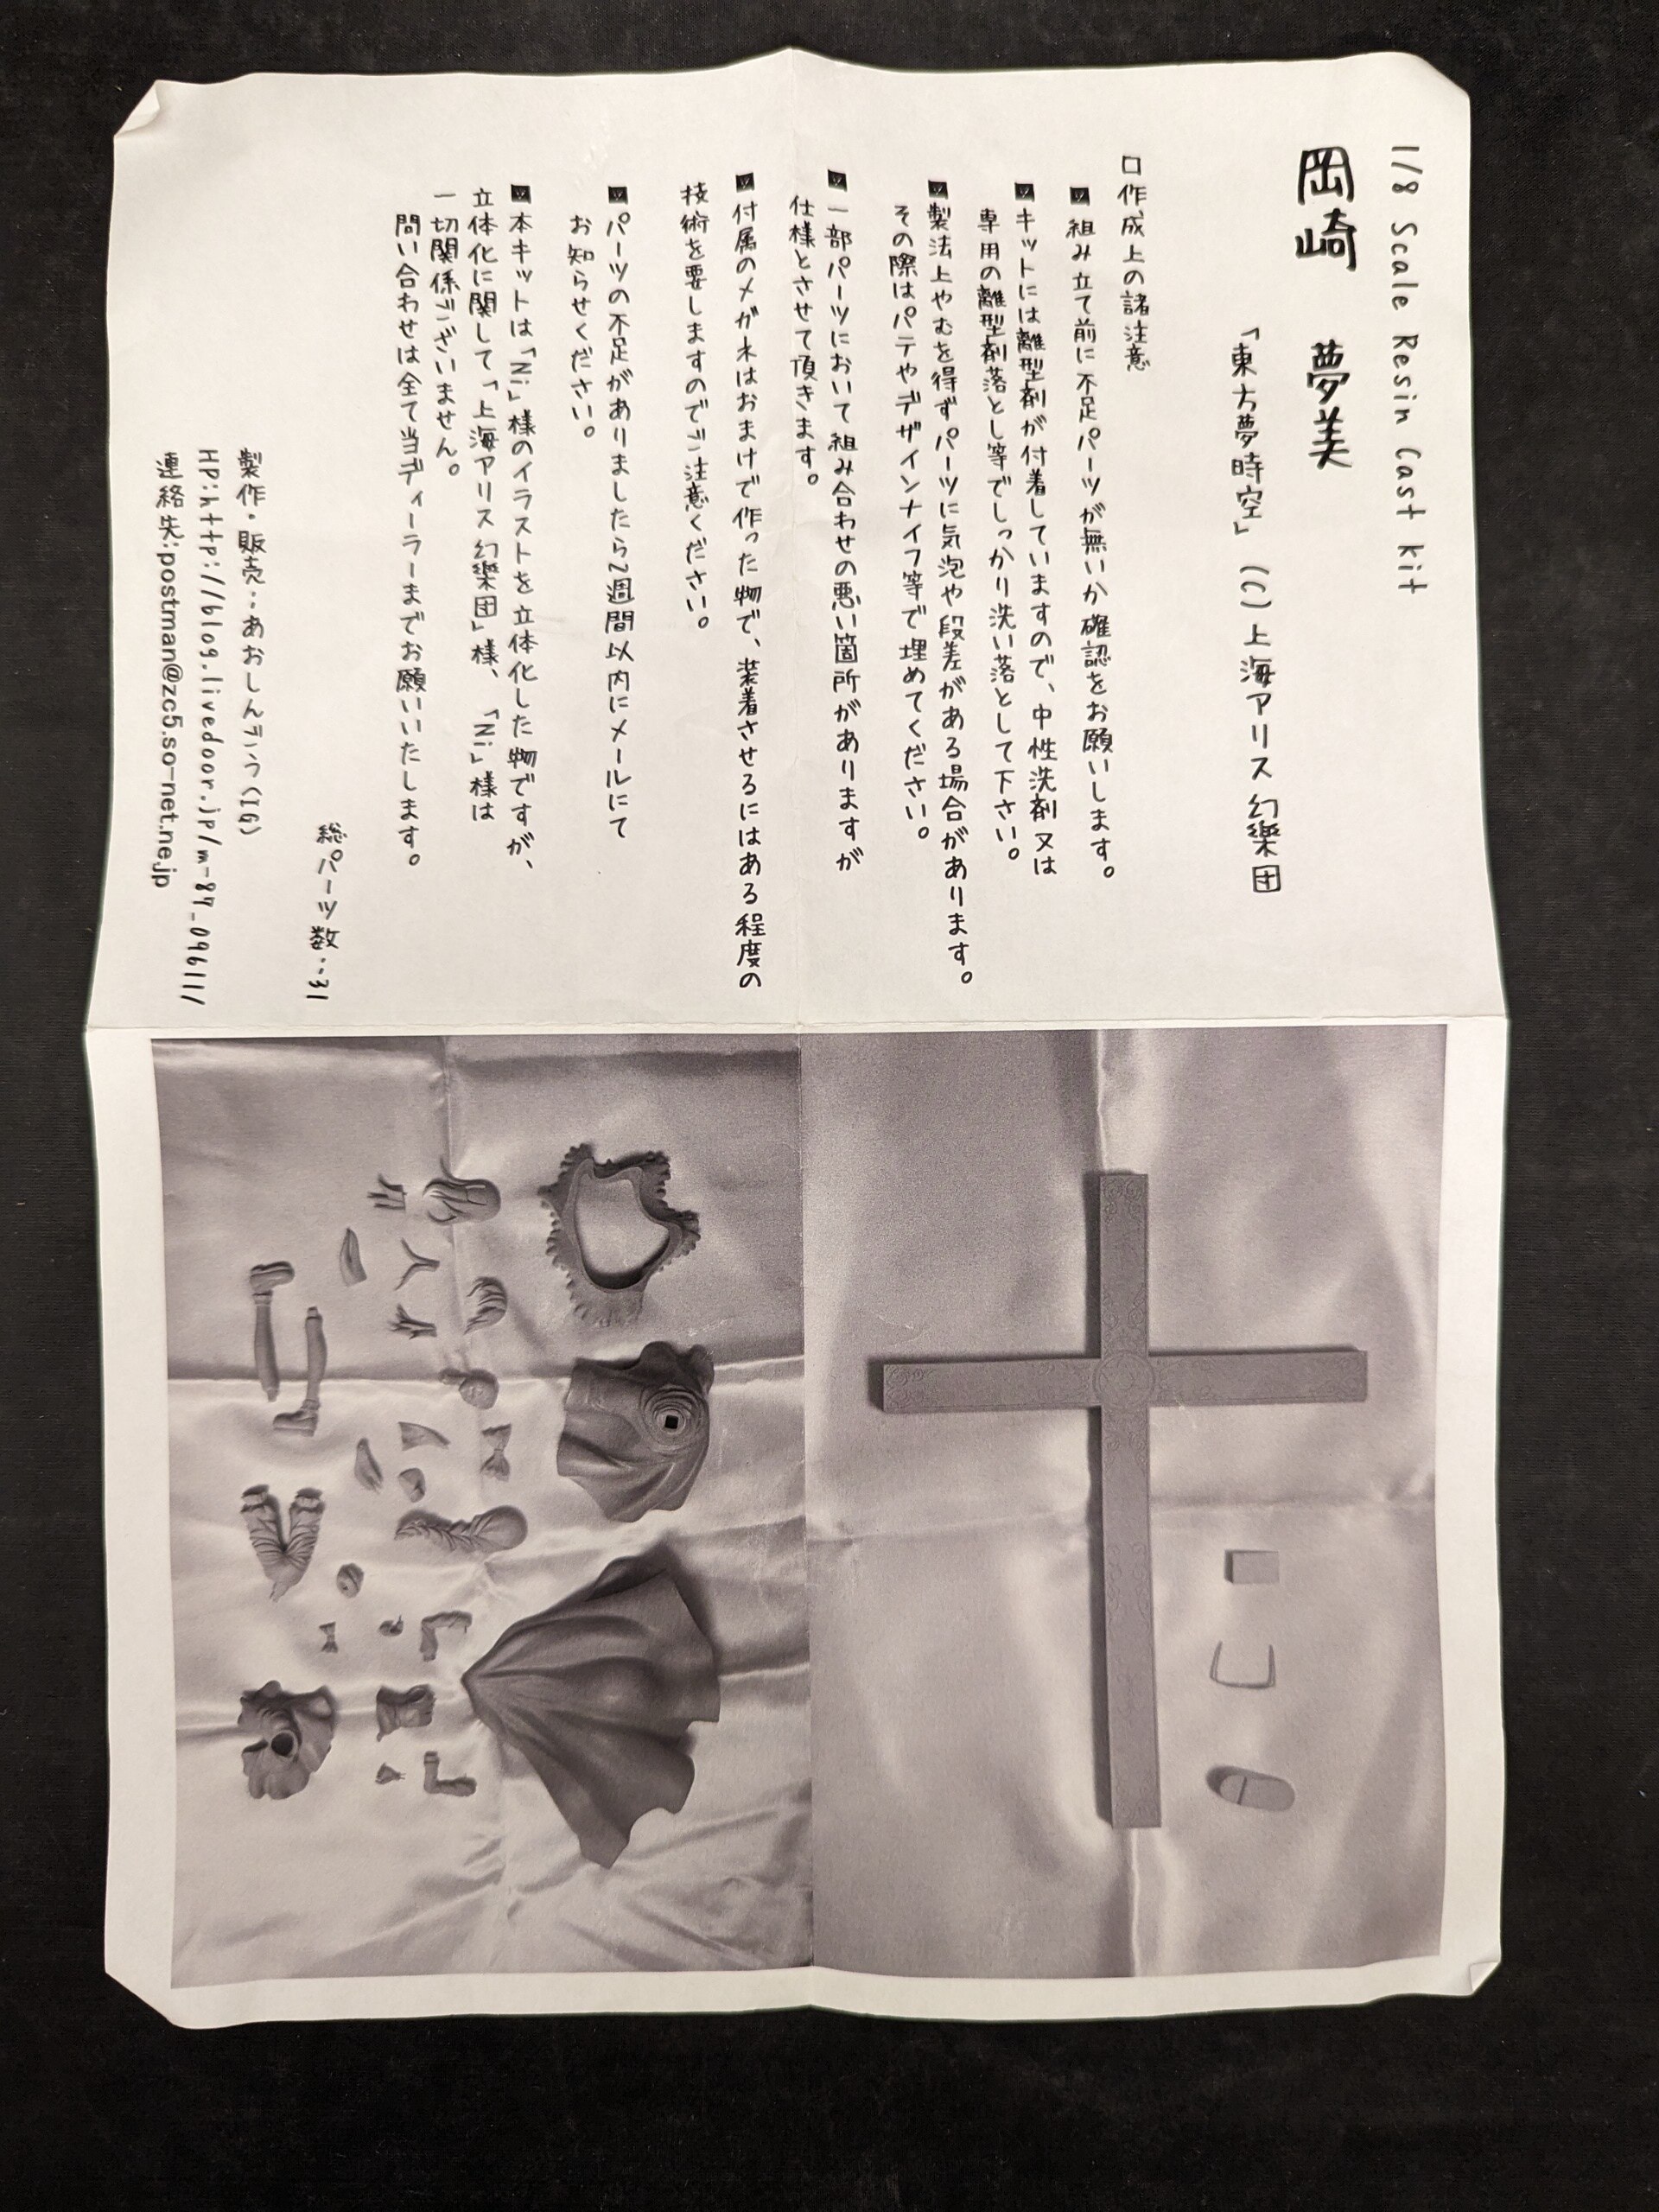 1/8 Scale Resin Cast Kit
岡崎 夢美
「東方夢時空」 (C)上海アリス幻樂団
□作成上の諸注意
■組み立て前に不足パーツが無いか確認をお願いします。
■キットには離型剤が付着していますので、中性洗剤又は
専用の離型剤落とし等でしっかり洗い落として下さい。
■製法上やむを得ずパーツに気泡や段差がある場合があります。
その際はパテやデザインナイフ等で埋めてください。
■一部パーツにおいて組み合わせの悪い箇所がありますが
仕様とさせて頂きます。
■付属のメガネはおまけで作った物で、装着させるにはある程度の
技術を要しますのでご注意ください。
■パーツの不足がありましたら2週間以内にメールにて
お知らせください。
■本キットは「Ni」様のイラストを立体化した物ですが、
立体化に関して「上海アリス幻樂団」様、「Ni」様は
一切関係ございません。
問い合わせは全て当ディーラーまでお願いいたします。
総パーツ数…31
製作・販売…あおしんごう(IG)
HP:http://blog.livedoor.jp/m-87_09611/
連絡先:postman@zc5.so-net.ne.jp